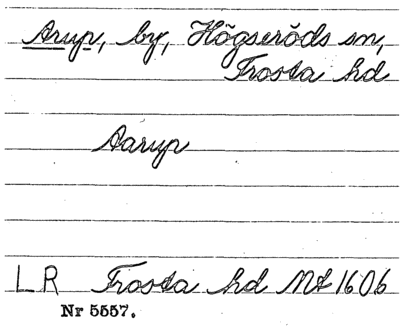 Arup, by, Högseröds sn,
Frosta hd
Aarup
LR Frosta hd Mt 1606
Nr 5557.